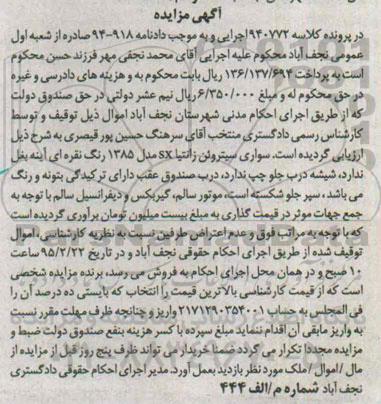 آگهی مزایده
در پرونده کلاسه ۹۴۰۷۷۲ اجرایی و به موجب دادنامه ۹۱۸-۹۴ صادره از شعبه اول
عمومی نجف آباد محکوم علیه اجرایی آقای محمد نجفی مهر فرزند حسن محکوم
است به پرداخت ۱۳۶/۱۳۷/۶۹۴ ریال بابت محکوم به و هزینه های دادرسی و غیره
در حق محکوم له و مبلغ ۶/۳۵۰/۰۰۰ ریال نیم عشر دولتی در حق صندوق دولت
که از طریق اجرای احکام مدنی شهرستان نجف آباد اموال ذیل توقیف و توسط
کارشناس رسمی دادگستری منتخب آقای سرهنگ حسین پور قیصری به شرح ذیل
ارزیابی گردیده است. سواری سیتروئن زانتیا SX مدل ۱۳۸۵ رنگ نقره ای آینه بغل
ندارد، شیشه درب جلو چپ ندارد، درب صندوق عقب دارای ترکیدگی بتونه و رنگ
می باشد، سپر جلو شکسته است، موتور سالم، گیربکس و دیفرانسیل سالم با توجه به
جمع جهات موثر در قیمت گذاری به مبلغ بیست میلیون تومان برآوری گردیده است
که با توجه به مراتب فوق و عدم اعتراض طرفین نسبت به نظریه کارشناسی، اموال
توقیف شده از طریق اجرای احکام حقوقی نجف آباد و در تاریخ ۹۵/۲/۲۲ ساعت
۱۰ صبح و در همان محل اجرای احکام به فروش می رسد، برنده مزایده شخصی
است که از قیمت کارشناسی بالاترین قیمت را انتخاب که بایستی ده درصد آن را
فی المجلس به حساب ۲۱۷۱۲۹۰۳۵۴۰۰۱ واریز و چنانچه ظرف مهلت مقرر نسبت
به واریز مابقی آن اقدام ننماید مبلغ سپرده با کسر هزینه بنفع صندوق دولت ضبط و
مزایده مجددا تکرار می گردد ضمنا خریدار می تواند ظرف پنج روز قبل از مزایده از
مال / اموال / ملک مورد نظر بازدید بعمل آورد. مدیر اجرای احکام حقوقی دادگستری
نجف آباد شماره م/الف ۴۴۴